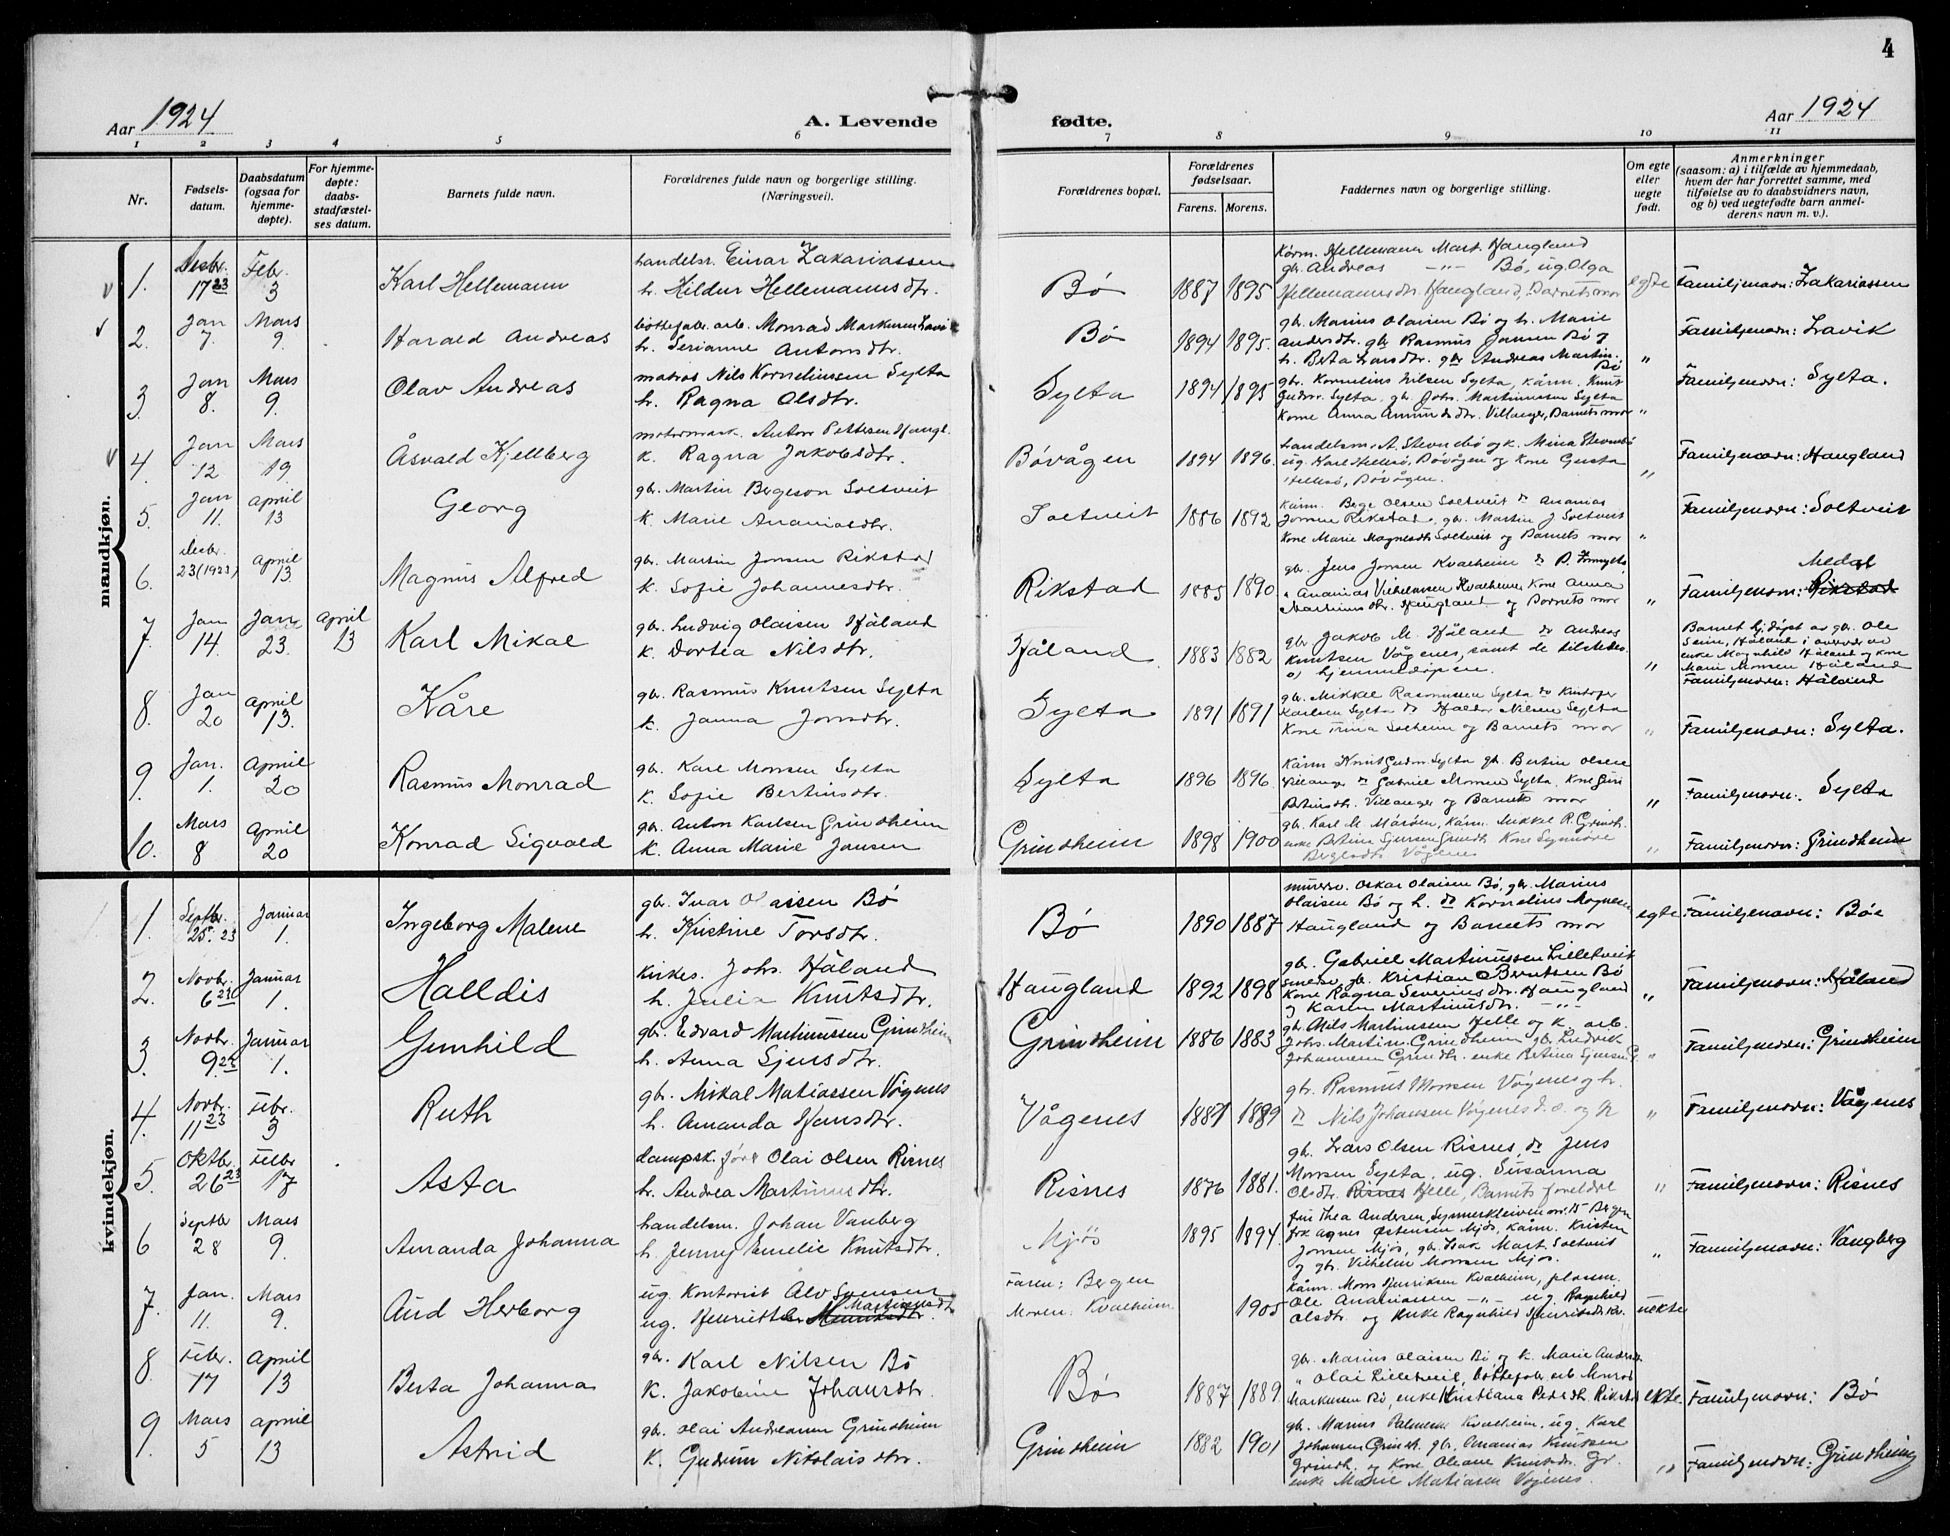 4
Aar 1924
A. Levende
fødte.
Aar 1924
1 2 3 4 5 6 7 8 9 10 11
Nr.
Fødsels-
datum.
Daabsdatum
(ogsaa for
hjemme-
døpte).
For hjemme-
døpte:
daabs-
stadfæstel-
ses datum.
Barnets fulde navn.
Forældrenes fulde navn og borgerlige stilling.
(Næringsvei).
Forældrenes bopæl.
Forældrenes
fødselsaar.
Farens. Morens.
Faddernes navn og borgerlige stilling.
Om egte
eller
uegte
født.
Anmerkninger
(saasom: a) i tilfælde av hjemmedaab,
hvem der har forrettet samme, med
tilføielse av to daabsvidners navn,
og b) ved uegtefødte barn anmel-
derens navn m. v.).
mandkjøn.
1. Desbr. 17 23 Febr. 3 Karl Hellemann
handelsr. Einar Zakariassen
h. Hildur Hellemannsdtr.
Bø 1887 1895
Kårm. Hellemann Mart. Haugland
gb. Andreas —"— Bø, ug. Olga
Hellemannsdtr. Haugland, Barnets mor
egte Familjenavn: Zakariassen
2. Jan 7. Mars 9. Harald Andreas
bøttefabr. arb. Monrad Markussen Lavik
h. Serianne Antonsdtr.
Bø 1894 1895.
gb. Marius Olaisen Bø og h. Marie
Andersdtr. gbr Rasmus Jansen Bø og
h. Berta Larsdtr. gbr Andreas Martin.
Bø
" Familjenavn: Lavik
3. Jan 8. Mars 9. Olav Andreas
matros Nils Korneliussen Sylta
h. Ragna Olsdtr.
Sylta 1894 1895
gbr. Kornelius Nilsen Sylta, kårm. Knut
Gudm. Sylta. gb. Johs. Martinussen Sylta
Kone Anna Amundsdtr. Villanger, Barnets mor
" Familjenavn: Sylta.
4. Jan 12 Mars 19. Åsvald Kjellberg
motormask. Anton Pettersen Haugl.
k. Ragna Jakobsdtr.
Bøvågen 1894 1896.
handelsm. A. Stevnebø og k. Mina Stevnebø
ug. Karl Hellesø, Bøvågen og Kone Gusta
Hellesø, Bøvågen.
" Familjenavn: Haugland
5. Jan 11. April 13 Georg
gbr. Martin Bergeson Soltveit
k. Marie Ananiasdtr.
Soltveit 1886 1892
Kårm. Berge Olsen Soltveit do Ananias
Jonsen Rikstad, gbr. Martin J. Soltveit
Kone Marie Magnesdtr Soltveit og Barnets mor
" Familjenavn: Soltveit
6. Desbr. 23 (1923) April 13. Magnus Alfred
gbr. Martin Jonsen Rikstad
k. Sofie Johannesdtr.
Rikstad 1885 1890.
gb. Jens Jonsen Kvalheim do
" Ananias Vilhelmsen Kvalheim, Kone Anna
Martinusdtr. Haugland og Barnets mor
" Familjenavn: Rikstad
7. Jan 14. Jan. 23. April 13 Karl Mikal
gbr. Ludvig Olaisen Håland
k. Dortea Nilsdtr.
Håland 1883 1882
gbr Jakob M. Håland do Andreas
Knutsen Vågenes, samt de tilstede
v) hjemmedåpen.
" Barnet hj.døpt av gb. Ole
Seim, Håland i overvær av
enke Magnhild Håland og kone
Marie Monsen Håland
Familjenavn: Håland
8. Jan 20 April 13. Kåre
gb. Rasmus Knutsen Sylta
k. Janna Jonsdtr.
Sylta 1891 1891
gb. Mikkel Rasmussen Sylta do Kristofer
Karlsen Sylta do Haldor Nilsen Sylta
Kone Trina Solheim og Barnets mor
" Familjenavn: Sylta.
9. Jan. 1. April 20 Rasmus Monrad
gb. Karl Monsen Sylta
k. Sofie Bertinsdtr.
Sylta 1896 1896.
Kårm Knut Gudm. Sylta gb. Bertin Olsen
Villanger do Gabriel Monsen Sylta. Kone Guri
Bertinsdtr. Villanger og Barnets mor
" Familjenavn: Sylta
10. Mars 8 April 20 Konrad Sigvald
gb. Anton Karlsen Grindheim
k. Anna Marie Jansen
Grindheim 1898 1900
gb. Karl M. Måråen, kårm. Mikkel R. Grindh.
enke Bertina Sjursen Grindh. Kone Synnøve
Vågenes
" Familjenavn: Grindheim
kvindekjøn.
1. Septbr. 25. 23 Januar 1. Ingeborg Malene
gbr. Ivar Olaisen Bø
h. Kristine Torsdtr.
Bø 1890 1887
murerv. Oskar Olaisen Bø, gb. Marius
Olaisen Bø og h. do Kornelius Mognesen
Haugland og Barnets mor
egte Familjenavn: Bøe
2. Novbr. 6 23 Januar 1. Halldis
kirkes. Johs. Håland
h. Julia Knutsdtr.
Haugland 1892 1898
gb. Gabriel Martinussen Lilletveit
smed, gb. Kristian Berntsen Bø
Kone Ragna Severinsdtr. Haugland
og Karen Martinusdtr. —"—
" Familjenavn: Håland
3. Novbr. 9. 23 Januar 1. Gunhild
gb. Edvard Martinussen Grindheim
h. Anna Sjursdtr.
Grindheim 1886 1883
gb. Nils Martinussen Helle og k. arb.
Johs. Martin. Grindheim gb. Ludvik
Johannesen Grindh. enke Bertina Sjursen G.
" Familjenavn: Grindheim
4. Novbr. 11 23 Febr. 3 Ruth
gb. Mikal Matiassen Vågenes
h. Amanda Hansdtr.
Vågenes 1887 1889
gb. Rasmus Monsen Vågenes og h.
do Nils Johansen Vågenes d. o. og h
" Familjenavn: Vågenes
5. Oktbr. 26 23 Febr 17 Asta
dampsk.fører Olai Olsen Risnes
h. Andrea Martinusdtr.
Risnes 1876 1881.
gb. Lars Olsen Risnes, do Jens
Monsen Sylta, ug. Susanna
Olsdtr. Risnes Helle, Barnets foreldre
" Familjenavn: Risnes
6 Septbr 28 Mars 9. Amanda Johanna
handelsm. Johan Vanberg
h. Jenny Emelie Knutsdtr.
Mjøs 1895 1894.
fru Thea Andersen, Bergen
frk Agnes Østensen Mjøs, kårm. Kristen
Jonsen Mjøs, gb. Isak Mart. Soltveit
og gb. Vilhelm Monsen Mjøs.
" Familjenavn: Vangberg
7. Jan. 11. Mars 9. Aud Herborg
ug. Kontorist Alv Svensen
ug. Henriette Martinusdtr.
Faren: Bergen
Moren: Kvalheim 1905
kårm. Mons Henriksen Kvalheim, plassm.
Ole Ananiassen —"— ug. Ragnhild
Olsdtr. og Enke Ragnhild Henriksdtr Kv.
uekte
8. Febr. 17 April 13 Berta Johanna
gbr. Karl Nilsen Bø
k. Jakobine Johansdtr.
Bø 1887 1889.
gb. Marius Olaisen Bø, og k. Marie Andersdtr
" Olai Lilletveit, bøttefabr. arb. Monrad
Markussen Bø, enke Kristiana Pedersdtr. Rikstad
ekte. Familjenavn: Bø
9. Mars 5 April 13 Astrid
gb. Olai Andreassen Grindheim
k. Gudrun Nikolaisdtr.
Grindheim 1882 1901
gb. Marius Palmesen Kvalheim, ug. Karl
Johansen Grindh. gb. Ananias Knutsen
Grindh. og Kone Oleane Knutsdtr. Gr.
enke Marie Matiasen Vågenes.
" Familjenavn: Grindheim